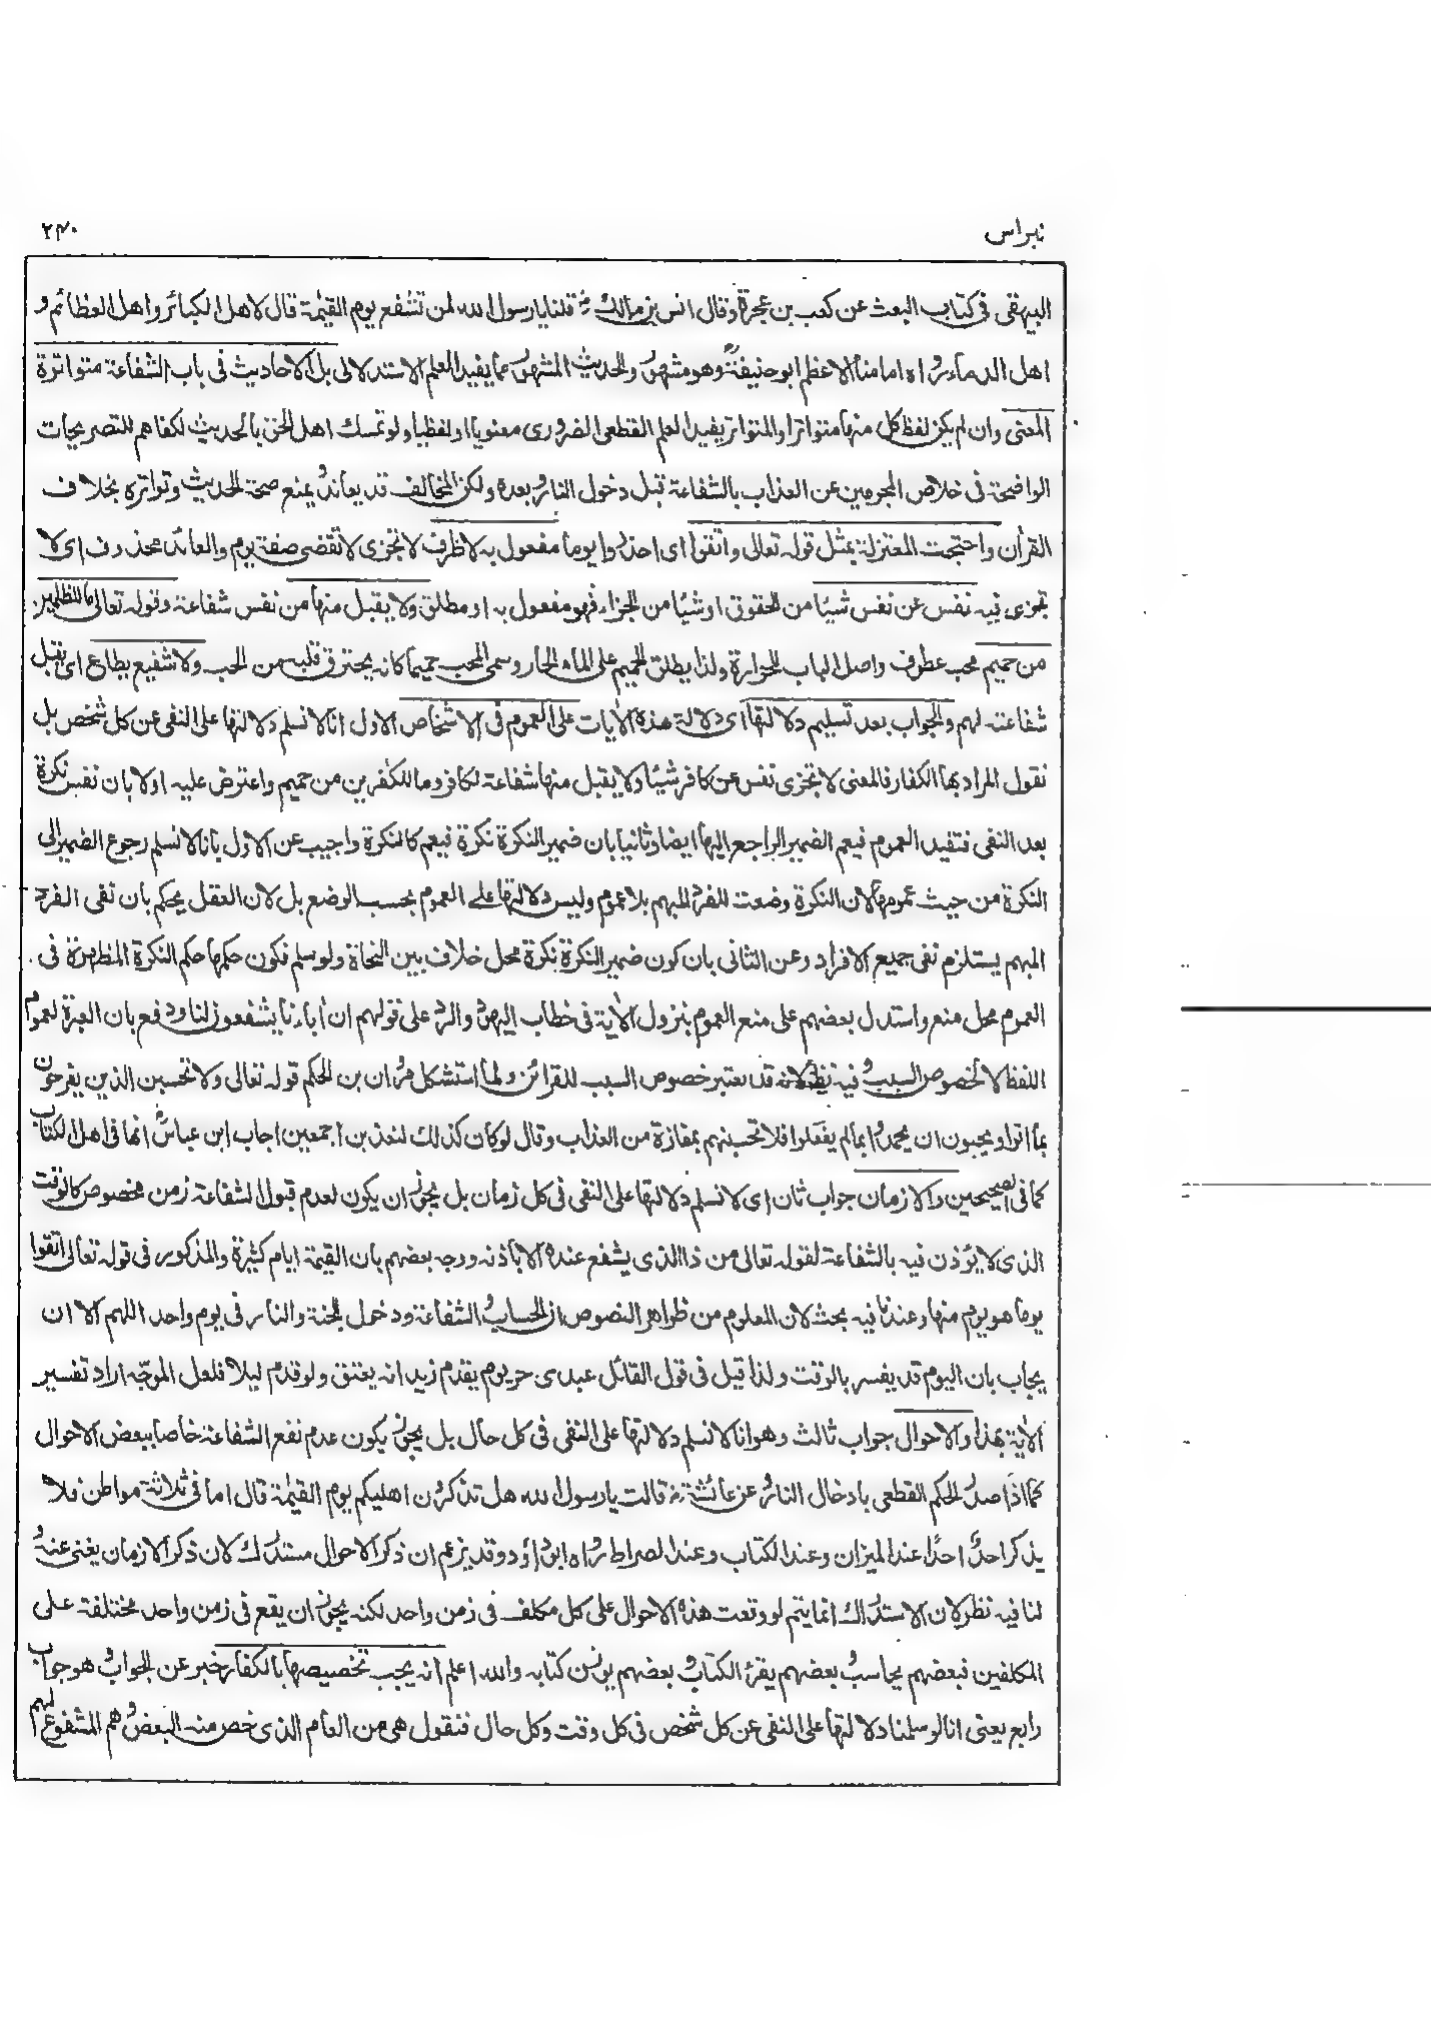 نبراس
٢٤٠
البيهقى فى كتاب البعث عن كعب بن عجرة وقال انس بن مالكؓ قلنا يا رسول الله لمن تشفع يوم القيٰمة قال لاهل الكبائر واهل العظائم و
اهل الدماء رواه امامنا الاعظم ابو حنيفةؒ وهو مشهور والحديث المشهور مما يفيد العلم الاستدلالى بل الاحاديث فى باب الشفاعة متواترة
المعنى وان لم يكن لفظ كل منها متواترا والمتواتر يفيد العلم القطعى الضرورى معنويا او لفظيا ولو تمسك اهل الحق بالحديث لكفاهم للتصريحات
الواضحة فى خلاص المجرمين عن العذاب بالشفاعة قبل دخول النار وبعده ولكن المخالف قد يعاند ويمنع صحة الحديث وتواتره بخلاف
القرأن واحتجت المعتزلة بمثل قوله تعالى واتقوا اى احذروا يوما مفعول به لا ظرف لا تجزى لا تقضى صفة يوم والعائد محذوف اى لا
تجزى فيه نفس عن نفس شيئا من الحقوق او شيئا من الجزاء فهو مفعول به او مطلق ولا يقبل منها من نفس شفاعة وقوله تعالى ما للظلمين
من حميم محب عطوف واصل الباب الحرارة ولذا يطلق الحميم على الماء الحار وسمى المحب حميما كانه يحترق قلبه من الحب ولا شفيع يطاع اى تقبل
شفاعته لهم والجواب بعد تسليم دلالتها اى دلالة هذه الأيات على العموم فى الاشخاص الاول انا لا نسلم دلالتها على النفى عن كل شخص بل
نقول المراد بها الكفار فالمعنى لا تجزى نفس عن كافر شيئا ولا يقبل منها شفاعة لكافر وما للكفرين من حميم واعترض عليه اولا بان نفس نكرة
بعد النفى فتفيد العموم فيعم الضمير الراجع اليها ايضا وثانيا بان ضمير النكرة نكرة فيعم كالنكرة واجيب عن الاول بانا لا نسلم رجوع الضمير الى
النكرة من حيث عمومها لان النكرة وضعت للفرد المبهم بلا عموم وليس دلالتها على العموم بحسب الوضع بل لان العقل يحكم بان نفى الفرد
المبهم يستلزم نفى جميع الافراد وعن الثانى بان كون ضمير النكرة نكرة محل خلاف بين النحاة ولو سلم فكون حكمها حكم النكرة المظهرة فى
العموم محل منع واستدل بعضهم على منع العموم بنزول الأية فى خطاب اليهود والرد على قولهم ان أباءنا يشفعون لنا ودفع بان العبرة لعموم
اللفظ لا لخصوص السبب وفيه نظر لانه قد يعتبر خصوص السبب للقرائن ولما استشكل مروان بن الحكم قوله تعالى ولا تحسبن الذين يفرحون
بما اتوا ويحبون ان يحمدوا بما لم يفعلوا فلا تحسبنهم بمفازة من العذاب وقال لو كان كذلك لنعذبن اجمعين اجاب ابن عباسؓ انها فى اهل الكتاب
كما فى الصحيحين والازمان جواب ثان اى لا نسلم دلالتها على النفى فى كل زمان بل يجوز ان يكون لعدم قبول الشفاعة زمن مخصوص كالوقت
الذى لا يؤذن فيه بالشفاعة لقوله تعالى من ذا الذى يشفع عنده الا باذنه ووجه بعضهم بان القيمة ايام كثيرة والمذكور فى قوله تعالى اتقوا
يوما هو يوم منها وعندنا فيه بحث لان المعلوم من ظواهر النصوص ان الحساب والشفاعة ودخول الجنة والنار فى يوم واحد اللهم الا ان
يجاب بان اليوم قد يفسر بالوقت ولذا قيل فى قول القائل عبدى حر يوم يقدم زيد انه يعتق ولو قدم ليلا فلعل الموجّه اراد تفسير
الأية بهذا والاحوال جواب ثالث وهو انا لا نسلم دلالتها على النفى فى كل حال بل يجوز ان يكون عدم نفع الشفاعة خاصا ببعض الاحوال
كما اذا صدر الحكم القطعى بادخال النار وعن عائشةؓ قالت يا رسول الله هل تذكرون اهليكم يوم القيٰمة قال اما فى ثلاثة مواطن فلا
يذكر احدٌ احدًا عند الميزان وعند الكتاب وعند الصراط رواه ابو داؤد وقد يزعم ان ذكر الاحوال مستدرك لان ذكر الازمان يغنى عنه و
لنا فيه نظر لان الاستدراك انما يتم لو وقعت هذه الاحوال على كل مكلف فى زمن واحد لكنه يجوز ان يقع فى زمن واحد مختلفة على
المكلفين فبعضهم يحاسب وبعضهم يقرأ الكتاب وبعضهم يوزن كتابه والله اعلم انه يجب تخصيصها بالكفار خبر عن الجواب وهو جواب
رابع يعنى انا لو سلمنا دلالتها على النفى عن كل شخص فى كل وقت وكل حال فنقول هى من العام الذى خص منه البعض وهم المشفوع لهم